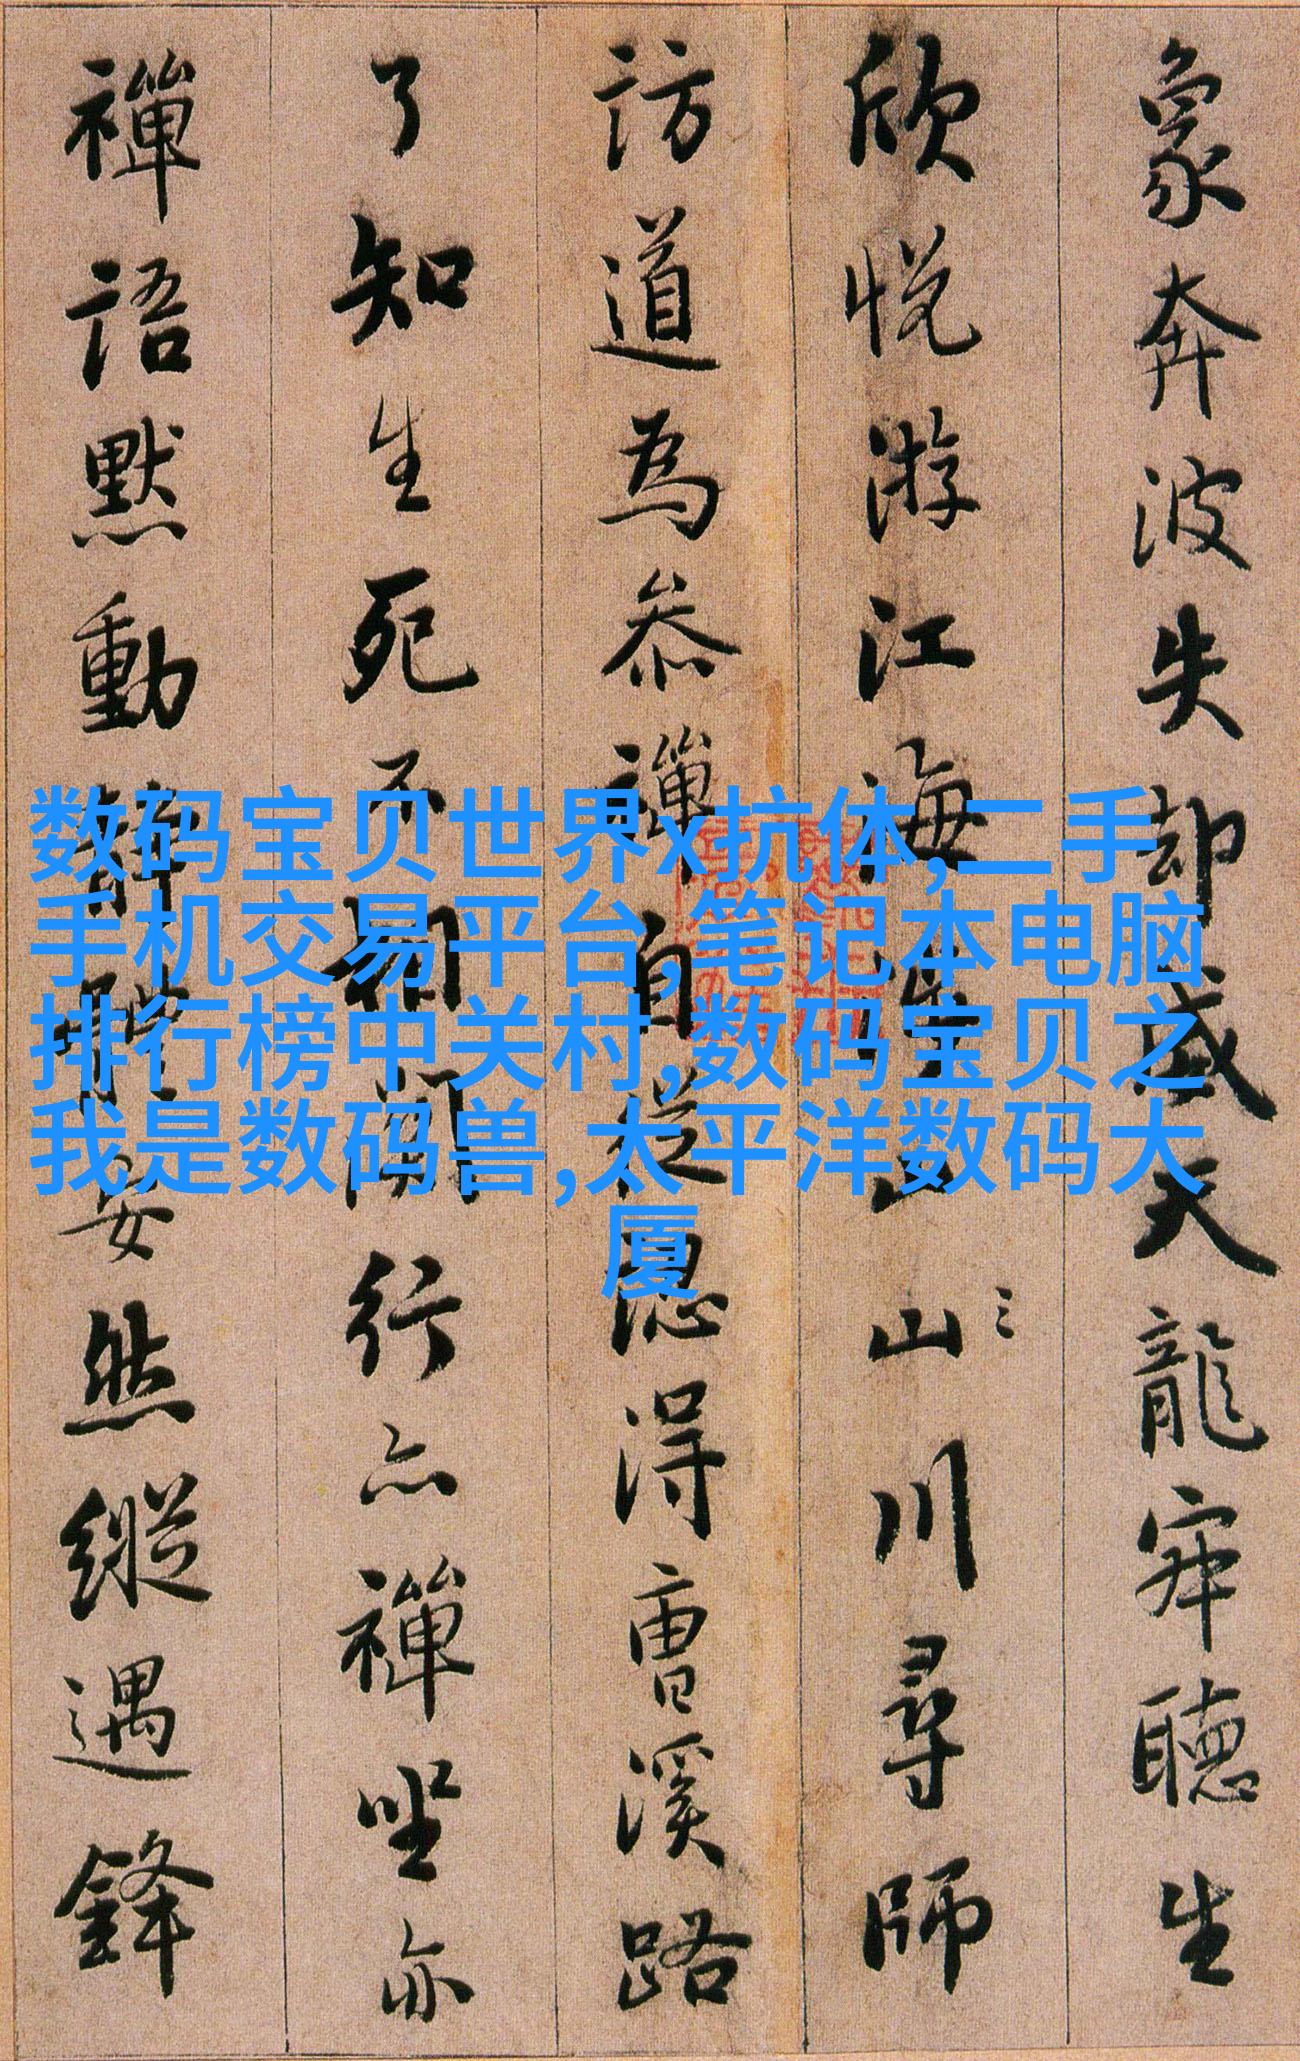 象奔波失却威天龍寂聽生
欣悅游江海山川尋師
訪道為叅禪自從認得曹溪路
了知生死不相開行亦禪坐亦
禪語默動靜體安然縱遇鋒
数码宝贝世界x抗体,二手
手机交易平台,笔记本电脑
排行榜中关村,数码宝贝之
我是数码兽,太平洋数码大
厦